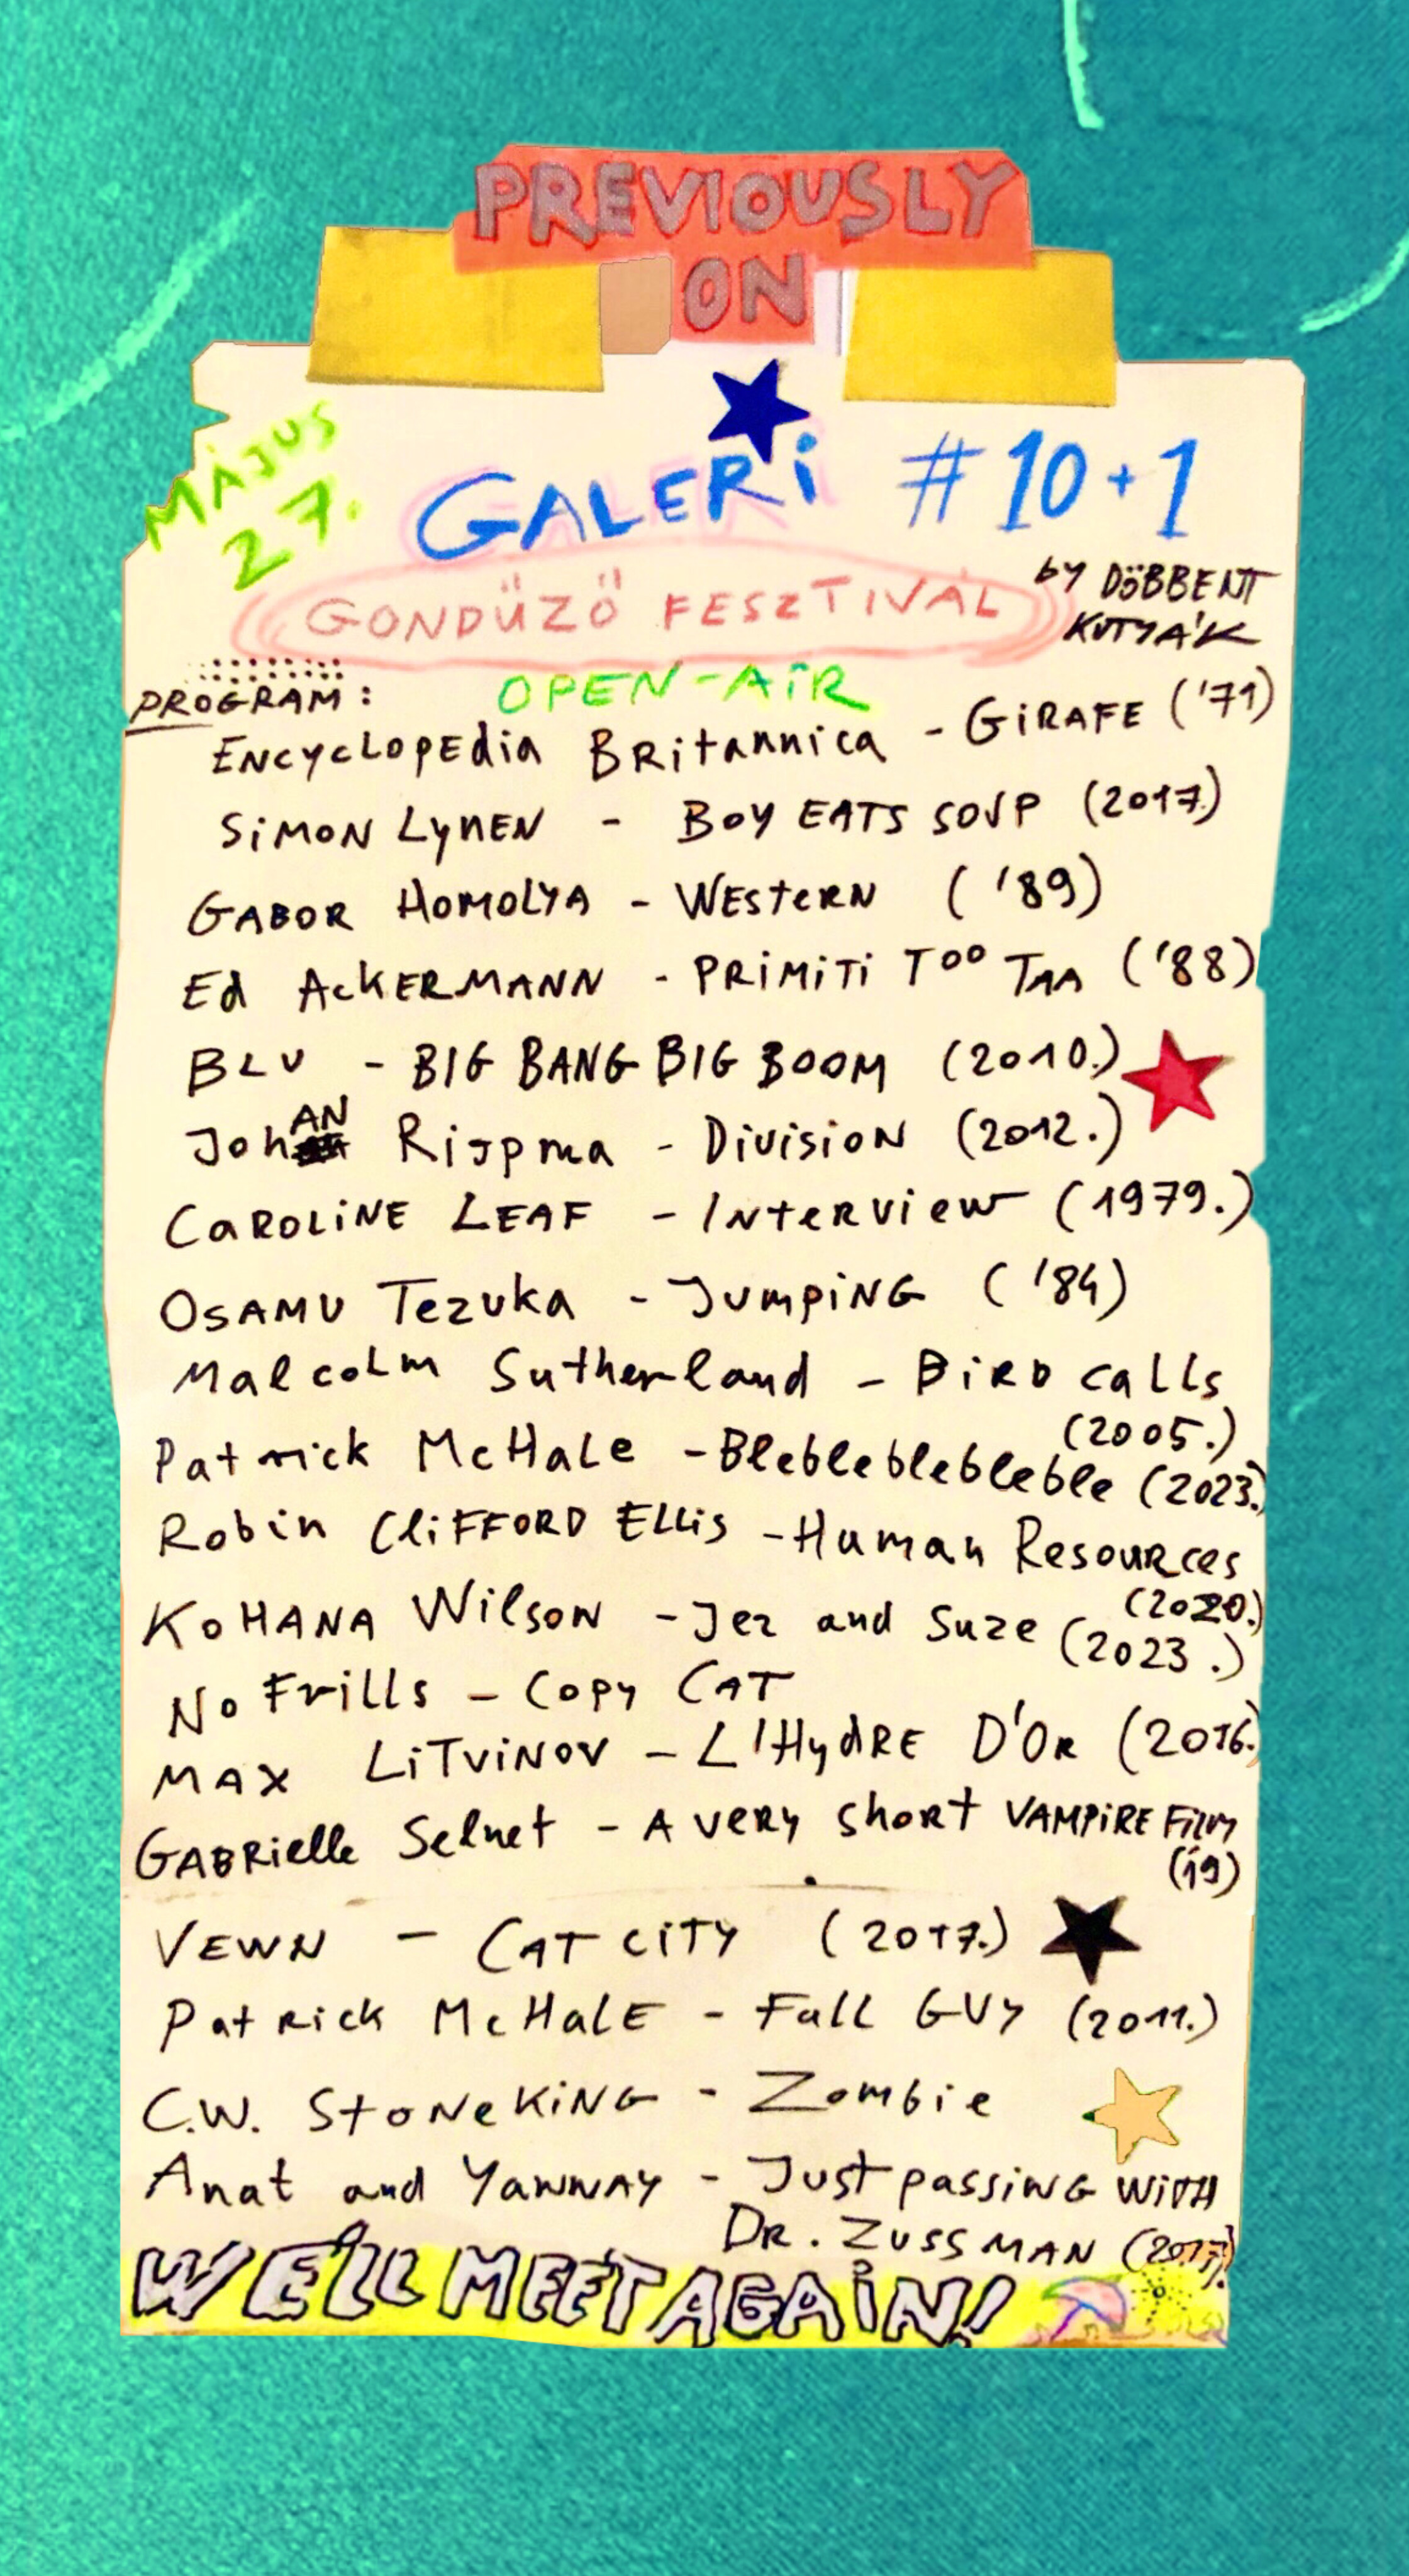 PREVIOUSLY
ON
MÁJUS
27.
GALERi #10+1
GONDŰZŐ FESZTIVÁL
by DöBBENT
KUTYÁK
OPEN-AiR
PROGRAM:
ENcyclopEdia BRitannica - GiRAFE ('71)
SiMON LynEN - BOY EATS SOUP (2017.)
GABOR HOMOLYA - WEsteRN ('89)
Ed AcKERMANN - PRiMiTi Too TAA ('88)
BLU - BIG BANG BIG BOOM (2010.)
JohAN Rijpma - DivisioN (2012.)
CaROLiNE LEAF - INteRview (1979.)
OSAMU Tezuka - JumpiNG ('84)
MalcoLm Sutherland - BiRD calls
(2005.)
Patrick McHaLe - Blebleblebleble (2023.)
Robin CliFFORD ELLis - Human ResouRces
(2020.)
KoHANA WilsoN - Jez and Suze (2023.)
No Frills - Copy CAT
MAX LiTViNOV - L'HydRE D'OR (2016.)
GABRielle Selnet - A veRy shoRt VAMPiRE Film
('19)
VEWN - CAT CiTY (2017.)
PatRick McHalE - Fall GUY (2011.)
C.W. StoNeKiNG - Zombie
Anat and YaNNAY - Just passiNG WiTH
DR. ZUSSMAN (2017.)
WE'LL MEET AGAiN!